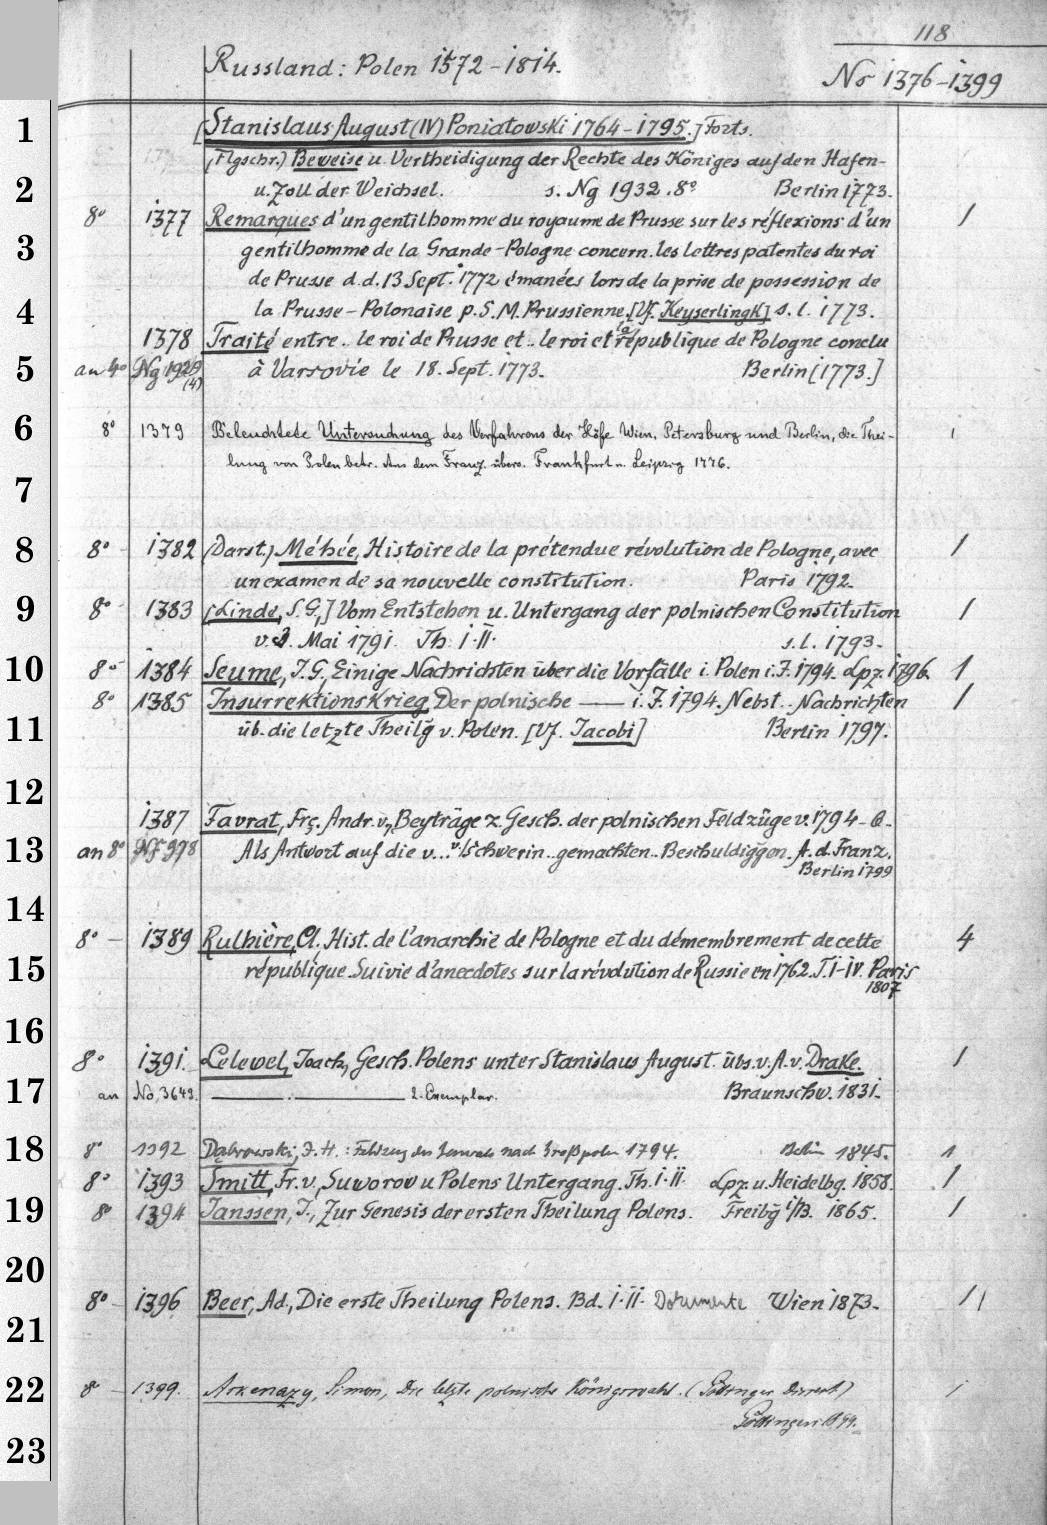 118
Russland: Polen 1572-1814.
No 1376-1399
1
[Stanislaus August (IV) Poniatowski 1764-1795.] Forts.
(Flgschr.) Beweise u. Vertheidigung der Rechte des Königes auf den Hafen-
2
u. Zoll der Weichsel. s. Ng 1932. 8° Berlin 1773.
8° 1377 Remarques d'un gentilhomme du royaume de Prusse sur les réflexions d'un 1
3
gentilhomme de la Grande-Pologne concern. les lettres patentes du roi
de Prusse d.d. 13 Sept. 1772 émanées lors de la prise de possession de
4
la Prusse-Polonaise p. S. M. Prussienne. [Vf. Keyserlingk] s. l. 1773.
1378 Traité entre.. le roi de Prusse et.. le roi et la république de Pologne conclu
5
an 4° Ng 1929 (4) à Varsovie le 18. Sept. 1773. Berlin [1773.]
6
8° 1379 Beleuchtete Untersuchung des Verfahrens der Höfe Wien, Petersburg und Berlin, die Thei- 1
lung von Polen betr. Aus dem Franz. übers. Frankfurt u. Leipzig 1776.
7
8
8° - 1382 (Darst.) Méhée, Histoire de la prétendue révolution de Pologne, avec 1
un examen de sa nouvelle constitution. Paris 1792.
9
8° - 1383 [Linde, S. G.,] Vom Entstehen u. Untergang der polnischen Constitution 1
v. 3. Mai 1791. Th. I.II. s.l. 1793.
10
8° - 1384 Seume, J. G., Einige Nachrichten über die Vorfälle i. Polen i. J. 1794. Lpz. 1796. 1
8° 1385 Insurrektionskrieg Der polnische —— i. J. 1794. Nebst.. Nachrichten 1
11
üb. die letzte Theilg v. Polen. [Vf. Jacobi] Berlin 1797.
12
1387 Favrat, Frç. Andr. v., Beyträge z. Gesch. der polnischen Feldzüge v. 1794-
13
an 8° Nf 978 Als Antwort auf die v... v. Schwerin.. gemachten.. Beschuldiggen. A. d. Franz.
Berlin 1799
14
8° - 1389 Rulhière, Cl., Hist. de l'anarchie de Pologne et du démembrement de cette 4
15
république. Suivie d'anecdotes sur la révolution de Russie en 1762. T. I-IV. Paris
1807
16
8° 1391. Lelewel, Joach., Gesch. Polens unter Stanislaus August. übs. v. A. v. Drake. 1
17
an No. 3643. —— . —— 2. Exemplar. Braunschw. 1831.
18
8° 1392 Dąbrowski, J. H.: Feldzug des Generals nach Großpolen 1794. Berlin 1845. 1
8° 1393 Smitt, Fr. v., Suworow u Polens Untergang. Th. I.II. Lpz. u. Heidelbg. 1858. 1
19
8° 1394 Janssen, J., Zur Genesis der ersten Theilung Polens. Freibg i/B. 1865. 1
20
8° - 1396 Beer, Ad., Die erste Theilung Polens. Bd. I.II. Dokumente Wien 1873. 1 1
21
22
8° - 1399. Askenazy, Simon, Die letzte polnische Königswahl. (Göttinger Dissert.) 1
Göttingen 1894.
23